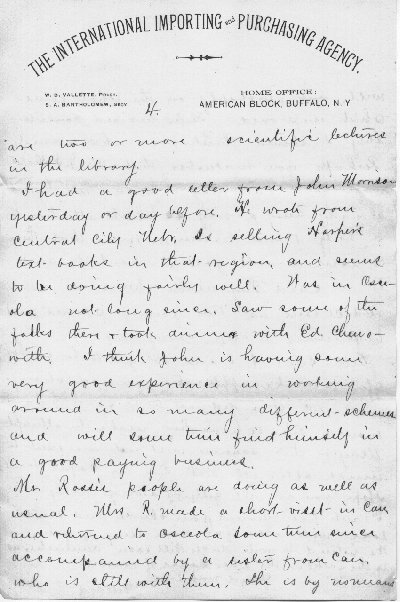 THE INTERNATIONAL IMPORTING and PURCHASING AGENCY.
W. D. VALLETTE, PREST.
S. A. BARTHOLOMEW, SECY
HOME OFFICE:
AMERICAN BLOCK, BUFFALO, N.Y
4.
are two or more scientific lectures
in the library.
I had a good letter from John Morrison
yesterday or day before. He wrote from
Central City Nebr. Is selling Harper's
text-books in that region, and seems
to be doing fairly well. Was in Osce-
ola not long since. Saw some of the
folks there & took dinner with Ed.
with. I think John is having some
very good experience in working
around in so many different schemes
and will some time find himself in
a good paying business.
Mr. Rossie people are doing as well as
usual. Mrs. R. made a short visit in Can
and returned to Osceola some time since
accompanied by a sister from Can.
who is still with them. She is by no means